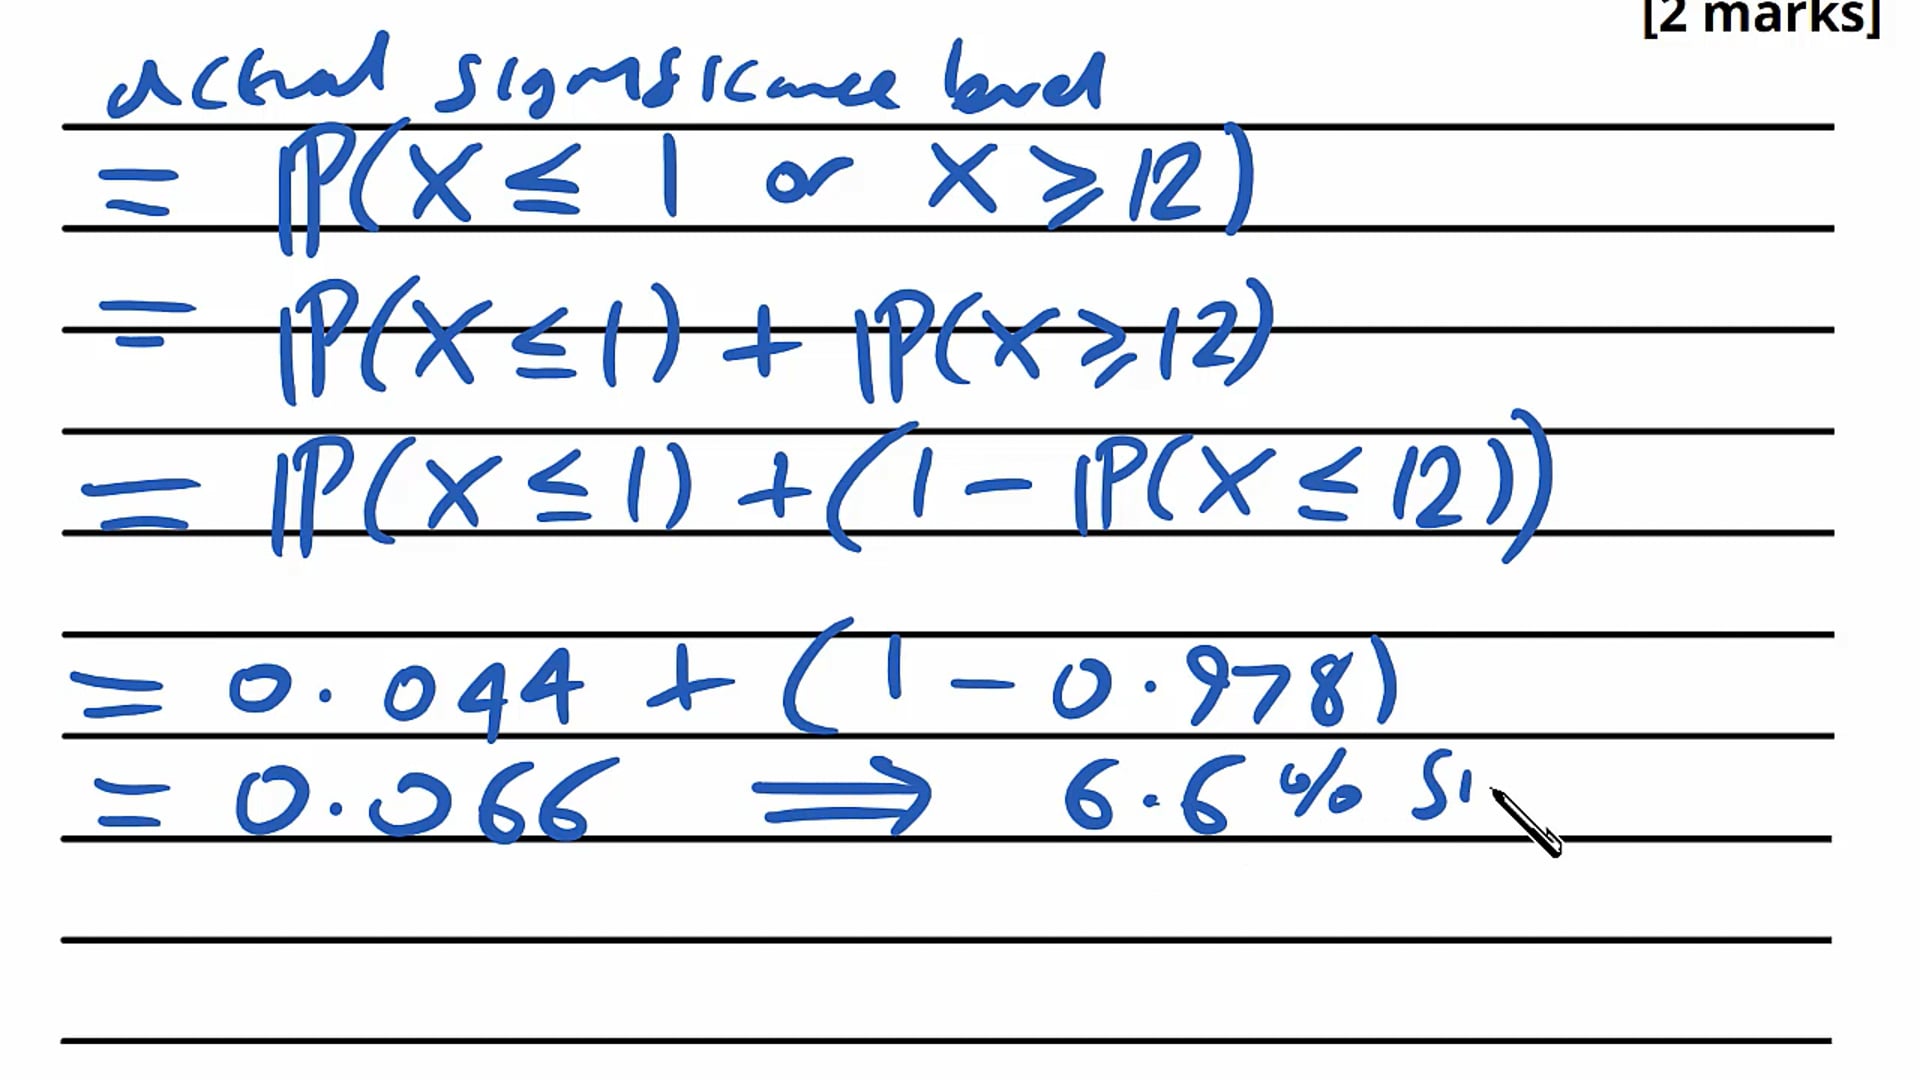 [2 marks]
actual significance level
= ℙ(X ≤ 1 or X ≥ 12)
= ℙ(X ≤ 1) + ℙ(X ≥ 12)
= ℙ(X ≤ 1) + (1 - ℙ(X ≤ 12))
= 0.044 + (1 - 0.978)
= 0.066 ⟹ 6.6% Si